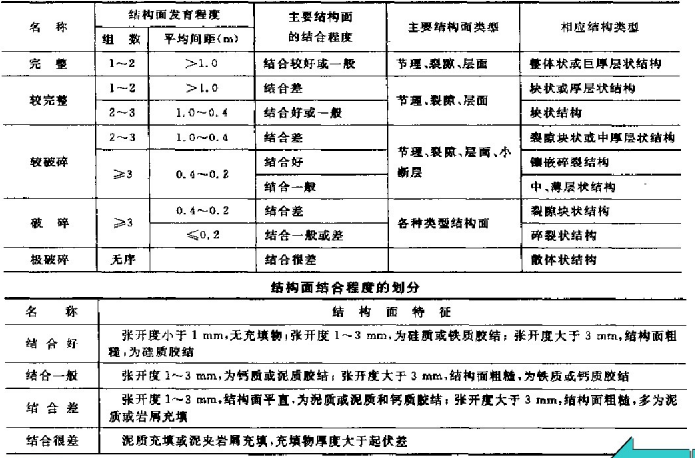 名 称 结构面发育程度 主要结构面的结合程度 主要结构面类型 相应结构类型
组 数 平均间距(m)
完 整 1~2 >1.0 结合较好或一般 节理、裂隙、层面 整体状或巨厚层状结构
较完整 1~2 >1.0 结合差 节理、裂隙、层面 块状或厚层状结构
2~3 1.0~0.4 结合好或一般 块状结构
较破碎 2~3 1.0~0.4 结合差 节理、裂隙、层面、小断层 裂隙块状或中厚层状结构
≥3 0.4~0.2 结合好 镶嵌碎裂结构
结合一般 中、薄层状结构
破 碎 ≥3 0.4~0.2 结合差 各种类型结构面 裂隙块状结构
≤0.2 结合一般或差 碎裂状结构
极破碎 无序 结合很差 散体状结构
结构面结合程度的划分
名 称 结 构 面 特 征
结 合 好 张开度小于 1 mm,无充填物;张开度 1~3 mm,为硅质或铁质胶结;张开度大于 3 mm,结构面粗
糙,为硅质胶结
结合一般 张开度 1~3 mm,为钙质或泥质胶结;张开度大于 3 mm,结构面粗糙,为铁质或钙质胶结
结 合 差 张开度 1~3 mm,结构面平直,为泥质或泥质和钙质胶结;张开度大于 3 mm,结构面粗糙,多为泥
质或岩屑充填
结合很差 泥质充填或泥夹岩屑充填,充填物厚度大于起伏差